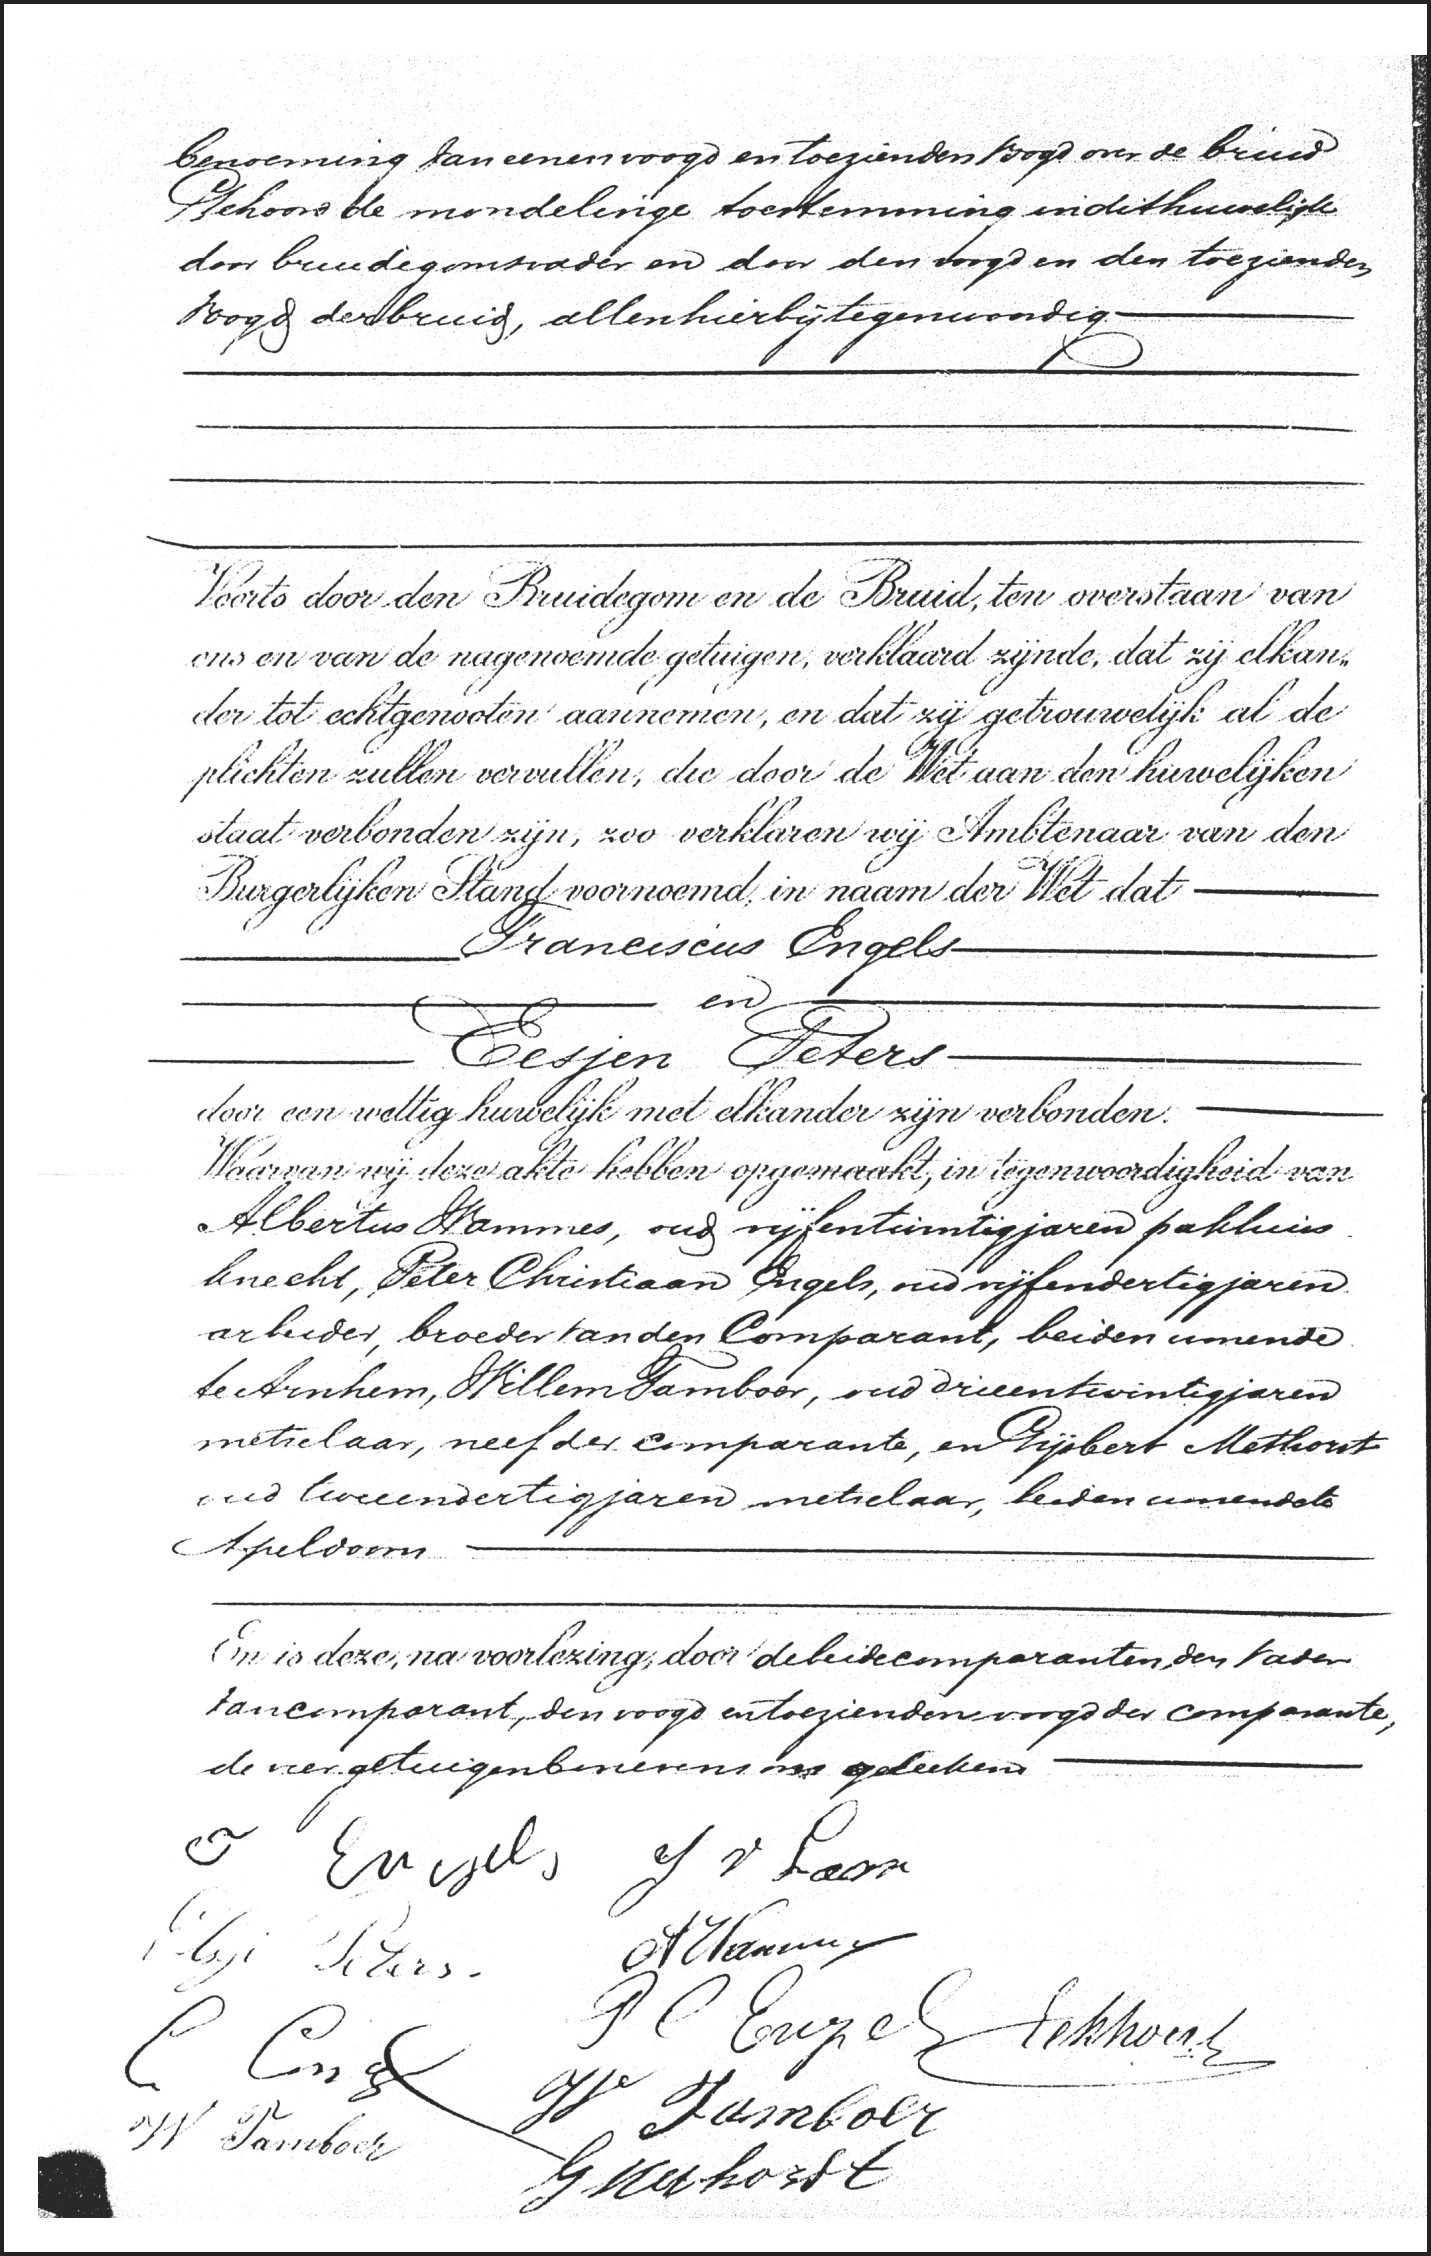 benoeming van eenen voogd en toezienden voogd over de bruid
Gehoord de mondelinge toestemming in dit huwelijk
door bruidegoms vader en door den voogd en den toezienden
voogd der bruid, allen hierbij tegenwoordig
Voorts door den Bruidegom en de Bruid, ten overstaan van
ons en van de nagenoemde getuigen, verklaard zijnde, dat zij elkan„
der tot echtgenooten aannemen, en dat zij getrouwelijk al de
plichten zullen vervullen, die door de Wet aan den huwelijken
staat verbonden zijn, zoo verklaren wij Ambtenaar van den
Burgerlijken Stand voornoemd, in naam der Wet dat
Franciscus Engels
en
Eesjen Peters
door een wettig huwelijk met elkander zijn verbonden.
Waarvan wij deze akte hebben opgemaakt, in tegenwoordigheid van
Albertus Wammes, oud vijfentwintig jaren pakhuis
knecht, Peter Christiaan Engels, oud vijfendertig jaren
arbeider, broeder van den Comparant, beiden wonende
te Arnhem, Willem Tamboer, oud drieentwintig jaren
metselaar, neef der comparante, en Gijsbert Methorst
oud tweeendertig jaren metselaar, beiden wonende te
Apeldoorn
En is deze, na voorlezing, door de beide comparanten, den vader
van comparant, den voogd en toezienden voogd der comparante,
de vier getuigen benevens ons geteekend
F Engels J v Laar
Peters. A Wammes
P C Engels
W Tamboer
Wm Tamboer
G Methorst